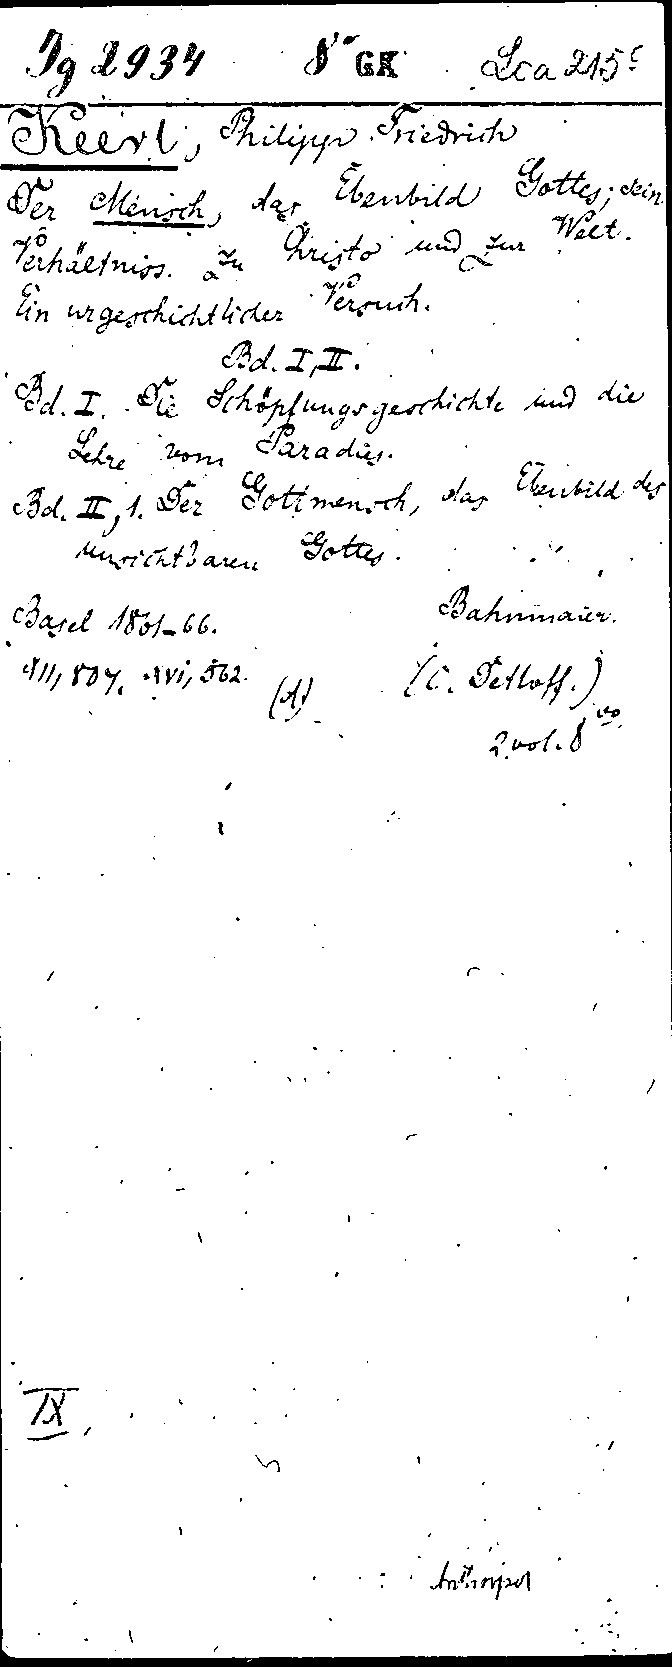 Jg 2934 8° GK Lca 215 c
Keerl, Philipp Friedrich
Der Mensch, das Ebenbild Gottes; sein
Verhältniss. zu Christo und zur Welt.
Ein urgeschichtlicher Versuch.
Bd. I, II.
Bd. I. Die Schöpfungsgeschichte und die
Lehre vom Paradies.
Bd. II, 1. Der Gottmensch, das Ebenbild des
unsichtbaren Gottes.
Basel 1861-66. Bahnmaier.
XII, 807. XVI, 562. (A) (C. Detloff.)
2 vol. 8vo
IX
Anthropol